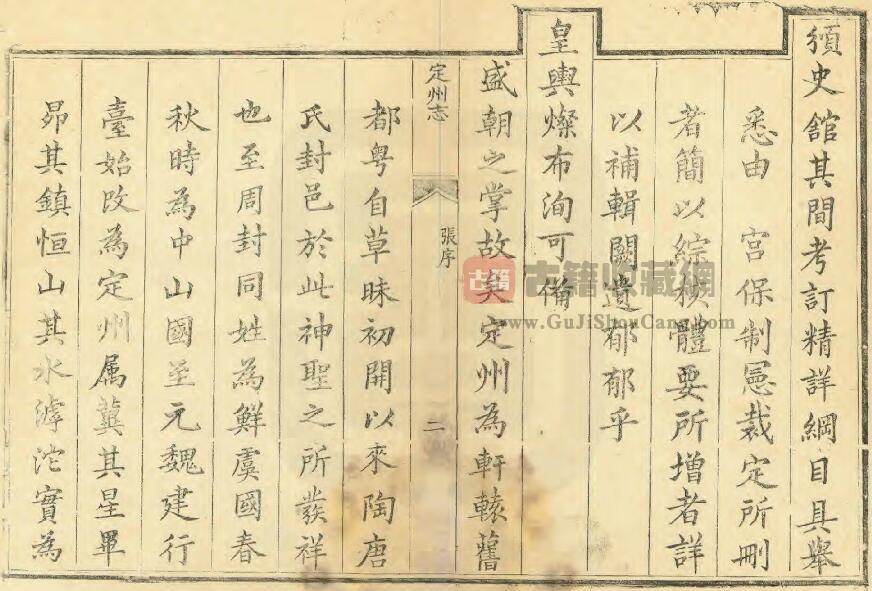 頒史館其間考訂精詳綱目具舉
悉由 宮保制憲裁定所刪
者簡以綜核體要所增者詳
以補輯闕遺郁郁乎
皇輿燦布洵可備
盛朝之掌故矣定州為軒轅舊
定州志 張序 二
都粤自草昧初開以來陶唐
氏封邑於此神聖之所發祥
也至周封同姓為鮮虞國春
秋時為中山國至元魏建行
臺始改為定州属冀其星畢
昴其鎮恒山其水滹沱實為
古籍 古籍收藏網
www.GuJiShouCang.com